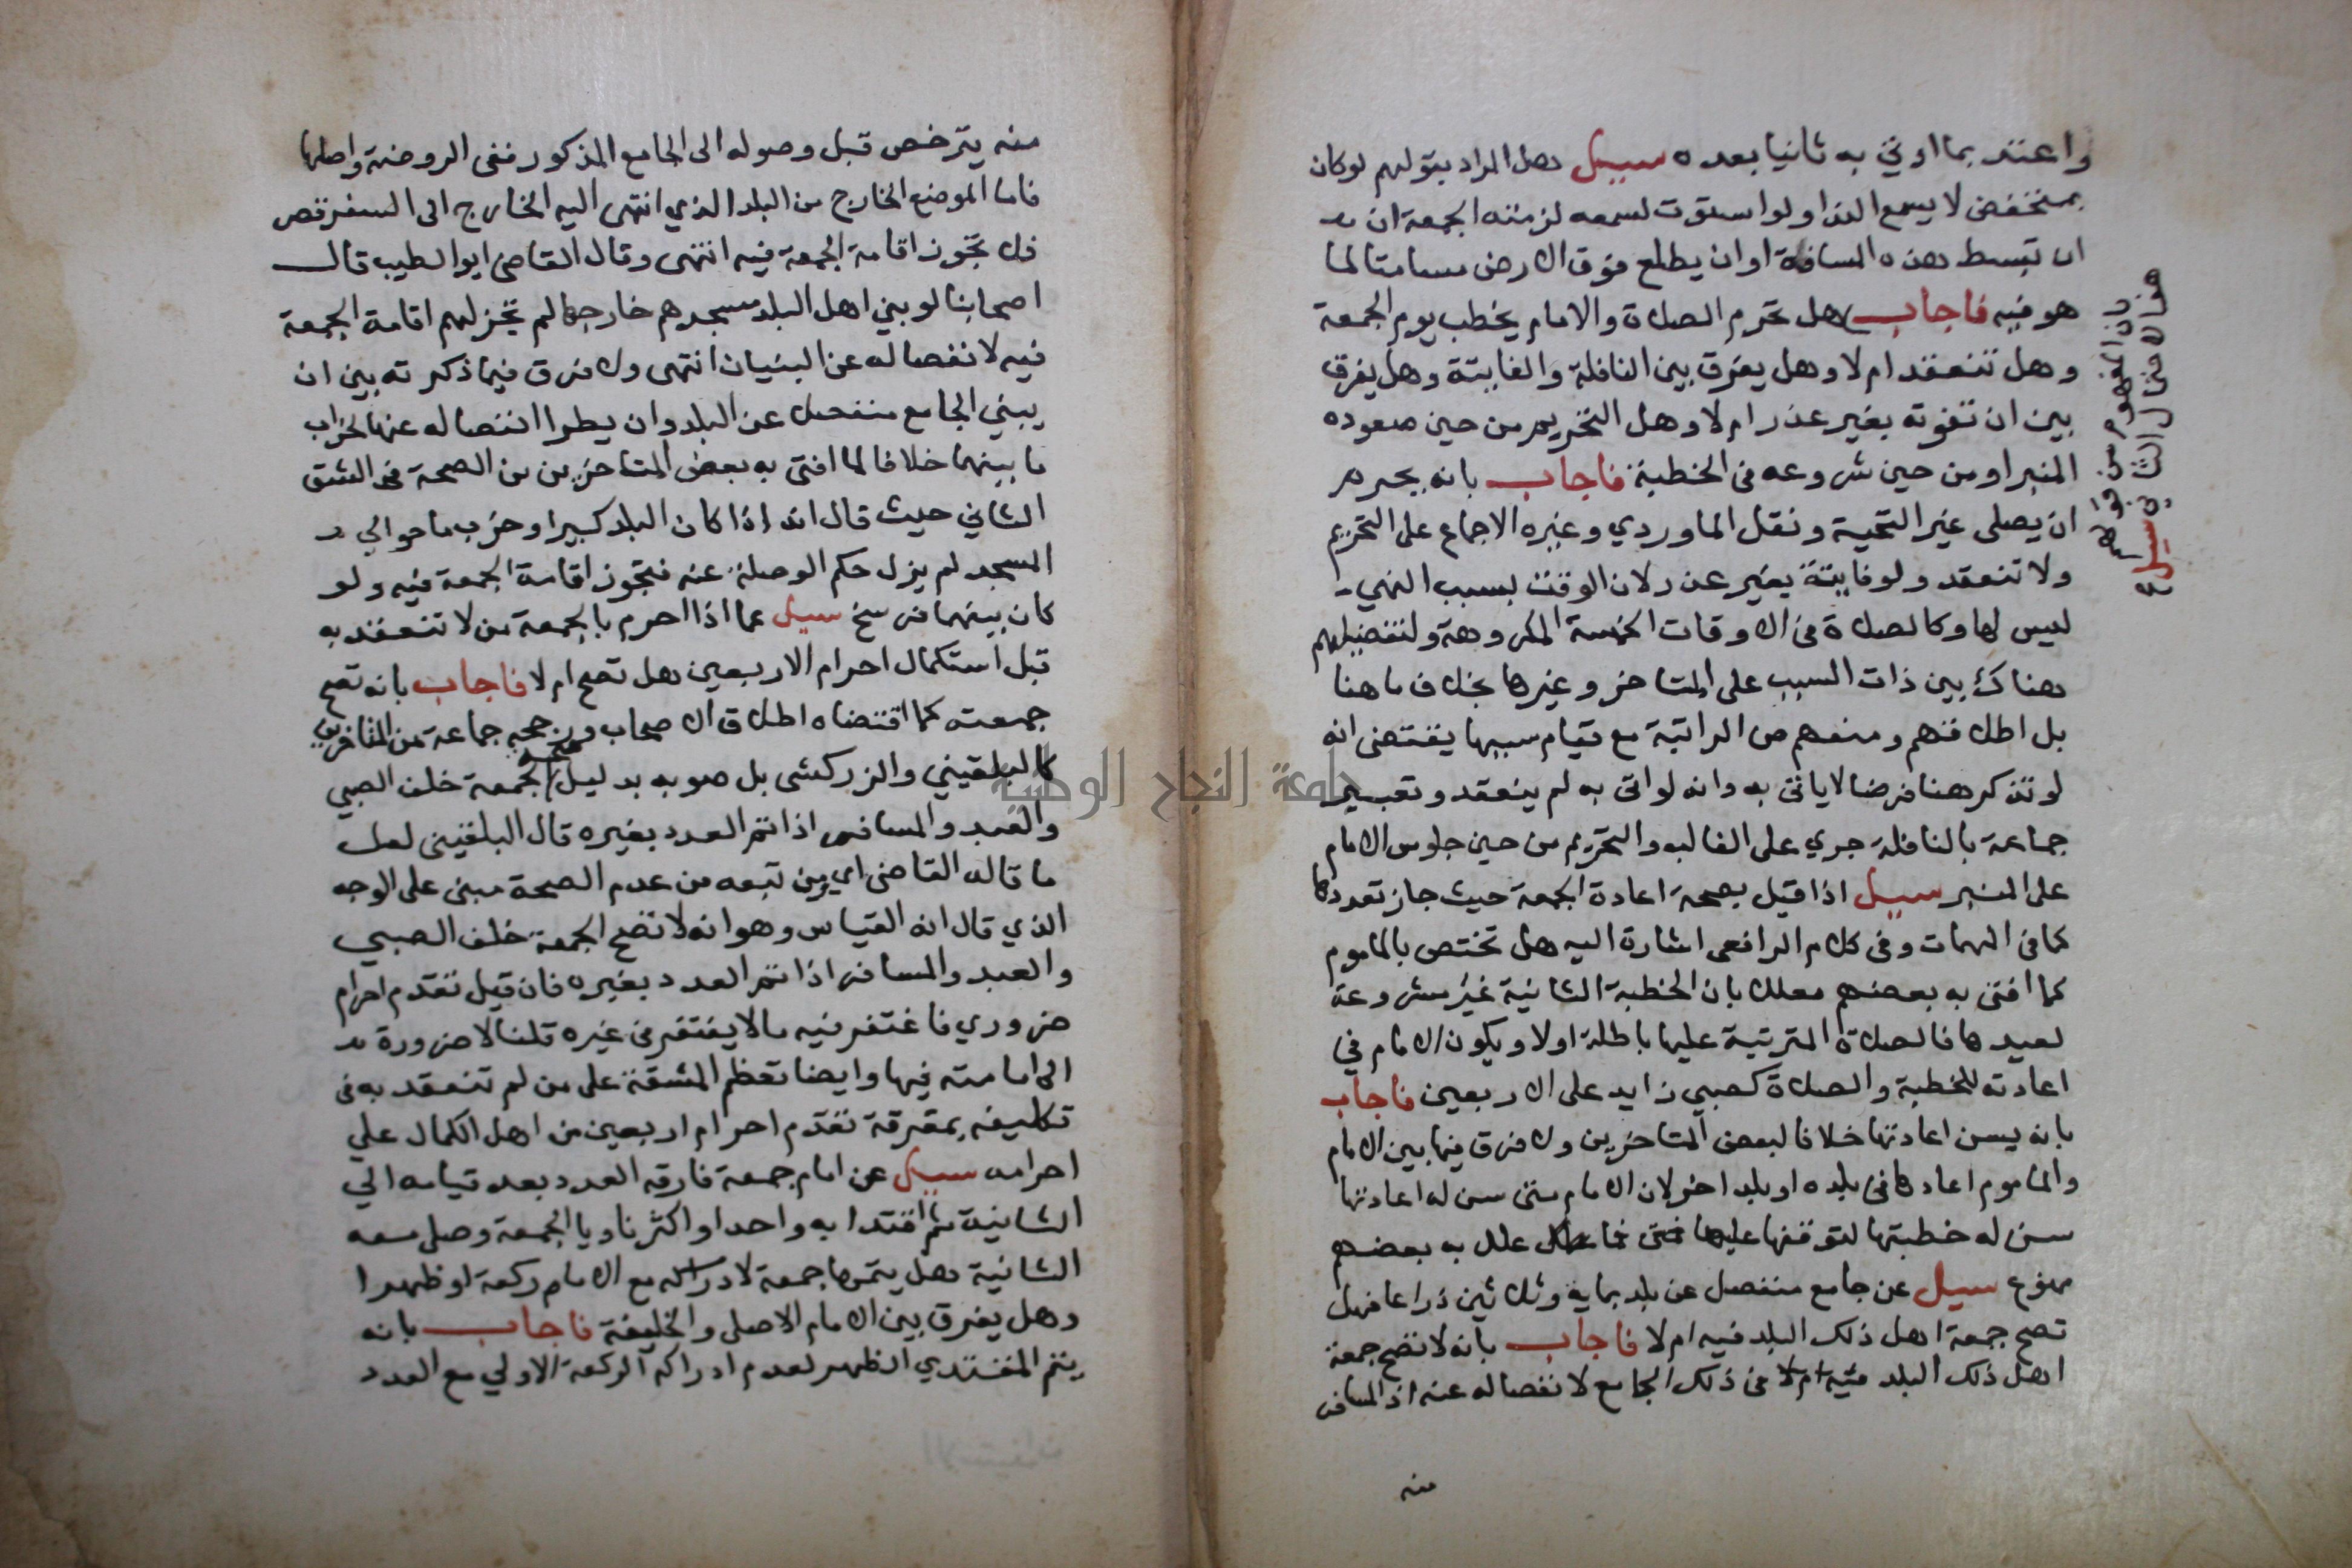 واعتد بما اوتي به ثانيا بعده سييل هل المراد بقولهم لوكان
بمنخفض لا يسمع الندا ولو استوت لسمعه لزمته الجمعة ان
ان تبسط هذه المسافة او ان يطلع فوق الارض مسامتا لما
هو فيه فاجاب هل تحرم الصلاة والامام يخطب يوم الجمعة
وهل تنعقد ام لا وهل يفرق بين النافلة والفايتة وهل يفرق
بين ان تفوته بغير عذر ام لا وهل التحريم من حين صعوده
المنبر او من حين شروعه في الخطبة فاجاب بانه يحرم
ان يصلى غير التحية ونقل الماوردي وغيره الاجماع على التحريم
ولا تنعقد ولو فايتة بغير عذر لان الوقت بسبب النهي
ليس لها وكالصلاة في الاوقات الخمسة المكروهة ولتفصيلهم
هناك بين ذات السبب على المتاخر وغيرها بخلاف ما هنا
بل اطلاقهم ومنعهم من الراتبة مع قيام سببها يقتضى انه
لو تذكر هنا فرضا لا ياتى به وانه لو اتى به لم ينعقد وتعبير
جماعة بالنافلة جري على الغالب والتحريم من حين جلوس الامام
على المنبر سييل اذا قيل بصحة اعادة الجمعة حيث جاز تعددها
كما في المهمات وفي كلام الرافعى اشارة اليه هل تختص بالماموم
كما افتى به بعضهم معللا بان الخطبة الثانية غير مشروعة
لعيدها فالصلاة المترتبة عليها باطلة اولا ويكون الامام في
اعادته للخطبة والصلاة كصبي زايد على الاربعين فاجاب
بانه يسن اعادتها خلافا لبعض المتاخرين ولا فرق فيها بين الامام
والماموم اعادها في بلده او بلد اخر لان الامام متى سن له اعادتها
سن له خطبتها لتوقفها عليها فتى فما علل به بعضهم
ممنوع سييل عن جامع منفصل عن بلد بماية وثلاثين ذراعا فهل
تصح جمعة اهل ذلك البلد فيه ام لا فاجاب بانه لا تصح جمعة
اهل ذلك البلد فيه ام لا في ذلك الجامع لانفصاله عنه اذ المسافر
منه
منه يترخص قبل وصوله الى الجامع المذكور ففى الروضة واصلها
فاما الموضع الخارج من البلد الذي انتهى اليه الخارج الى السفر قصر
فلا تجوز اقامة الجمعة فيه انتهى وقال القاضى ابوالطيب قال
اصحابنا لو بني اهل البلد مسجدهم خارجها لم تجز لهم اقامة الجمعة
فيه لانفصاله عن البنيان انتهى ولا فرق فيما ذكرته بين ان
يبني الجامع منفصلا عن البلد وان يطرا انفصاله عنها لخراب
ما بينهما خلافا لما افتى به بعض المتاخرين من الصحة في الشق
الثاني حيث قال انه اذا كان البلد كبيرا وخرب ما حوالي
المسجد لم يزل حكم الوصلة عنه فتجوز اقامة الجمعة فيه ولو
كان بينهما فرسخ سييل عما اذا احرم بالجمعة من لا تنعقد به
قبل استكمال احرام الاربعين هل تصح ام لا فاجاب بانه تصح
جمعته كما اقتضاه اطلاق الاصحاب ورجحه جماعة من المتاخرين
كالبلقيني والزركشى بل صوبه بدليل صحة الجمعة خلف الصبي
والعبد والمسافر اذا تم العدد بغيره قال البلقينى لعل
ما قاله القاضى اي ومن تبعه من عدم الصحة مبنى على الوجه
الذي قال انه القياس وهو انه لا تصح الجمعة خلف الصبي
والعبد والمسافر اذا تم العدد بغيره فان قيل تقدم احرام
ضروري فاغتفر فيه ما لا يغتفر في غيره قلنا لا ضرورة
الى امامته فيها وايضا تعظم المشقة على من لم تنعقد به في
تكليفه بمعرفة تقدم احرام اربعين من اهل الكمال علي
احرامه سييل عن امام جمعة فارقه العدد بعد قيامه الي
الثانية ثم اقتدا به واحد او اكثر ناويا الجمعة وصلى معه
الثانية هل يتمها جمعة لادراكه مع الامام ركعة او ظهرا
وهل يفرق بين الامام الاصلى والخليفة فاجاب بانه
يتم المقتدي الظهر لعدم ادراكه الركعة الاولي مع العدد
هنا لا فضال الثاني سيل ع
جامعة النجاح الوطنية